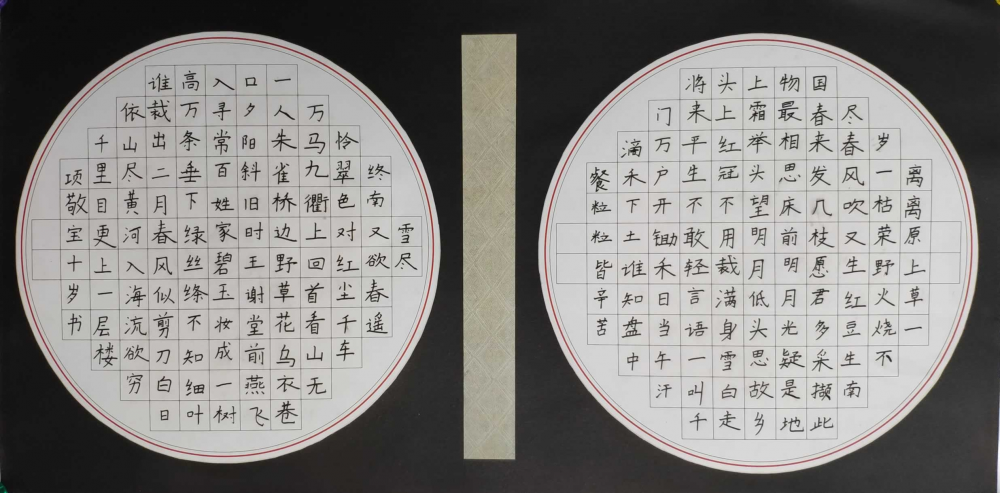 离离原上草一
岁一枯荣野火烧不
尽春风吹又生红豆生南
国春来发几枝愿君多采撷此
物最相思床前明月光疑是地
上霜举头望明月低头思故乡
头上红冠不用裁满身雪白走
将来平生不敢轻言语一叫千
门万户开锄禾日当午汗
滴禾下土谁知盘中
餐粒粒皆辛苦
雪尽
终南又欲春遥
怜翠色对红尘千车
万马九衢上回首看山无
一人朱雀桥边野草花乌衣巷
口夕阳斜旧时王谢堂前燕飞
入寻常百姓家碧玉妆成一树
高万条垂下绿丝绦不知细叶
谁栽出二月春风似剪刀白日
依山尽黄河入海流欲穷
千里目更上一层楼
项敬宝十岁书